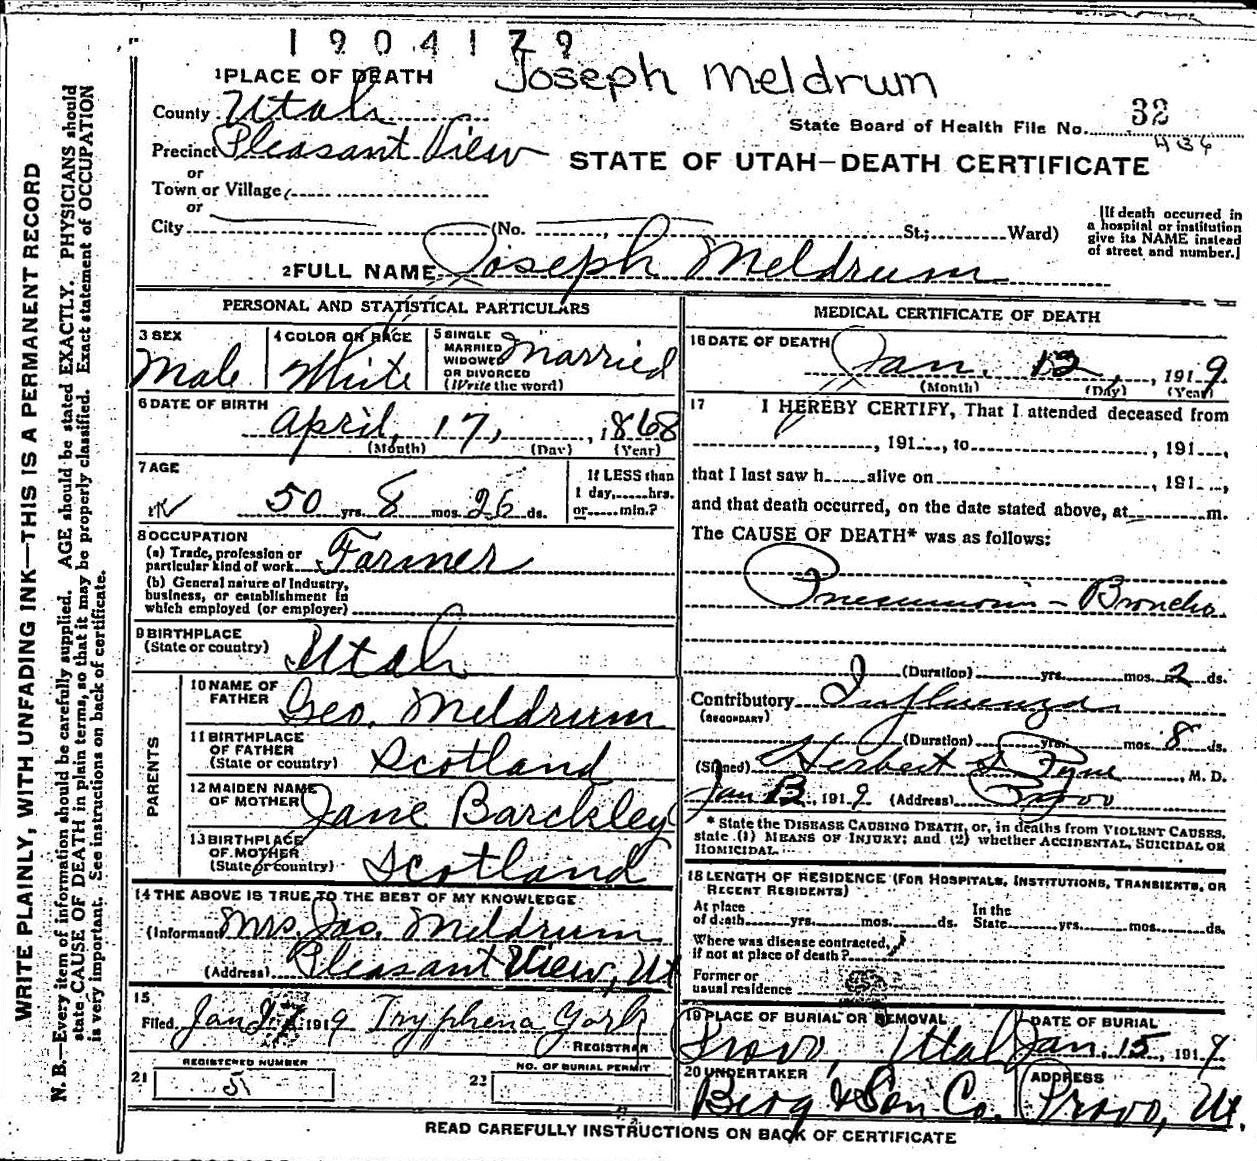 1904179
Joseph Meldrum
1 PLACE OF DEATH
County Utah
Precinct Pleasant View
or
Town or Village
or
City (No. , St.; Ward)
State Board of Health File No. 32
436
STATE OF UTAH—DEATH CERTIFICATE
[If death occurred in
a hospital or institution
give its NAME instead
of street and number.]
2 FULL NAME Joseph Meldrum
PERSONAL AND STATISTICAL PARTICULARS
3 SEX
Male
4 COLOR OR RACE
White
5 SINGLE
MARRIED
WIDOWED
OR DIVORCED
(Write the word)
Married
6 DATE OF BIRTH
April, 17, , 1868
(Month) (Day) (Year)
7 AGE
50 yrs. 8 mos. 26 ds.
If LESS than
1 day,......hrs.
or......min.?
8 OCCUPATION
(a) Trade, profession or
particular kind of work Farmer
(b) General nature of Industry,
business, or establishment in
which employed (or employer)
9 BIRTHPLACE
(State or country) Utah
PARENTS
10 NAME OF
FATHER Geo. Meldrum
11 BIRTHPLACE
OF FATHER
(State or country) Scotland
12 MAIDEN NAME
OF MOTHER Jane Barckley
13 BIRTHPLACE
OF MOTHER
(State or country) Scotland
14 THE ABOVE IS TRUE TO THE BEST OF MY KNOWLEDGE
(Informant Mrs. Jos. Meldrum
(Address) Pleasant View, Ut
15
Filed Jan 27 1919 Tryphena York
REGISTRAR
REGISTERED NUMBER
21 5
NO. OF BURIAL PERMIT
22
MEDICAL CERTIFICATE OF DEATH
16 DATE OF DEATH
Jan. 12, , 1919
(Month) (Day) (Year)
17 I HEREBY CERTIFY, That I attended deceased from
, 191..., to , 191...,
that I last saw h......alive on , 191...,
and that death occurred, on the date stated above, at m.
The CAUSE OF DEATH* was as follows:
Pneumonia - Broncho
(Duration) yrs. mos. 2 ds.
Contributory Influenza
(SECONDARY)
(Duration) yrs. mos. 8 ds.
(Signed) Herbert S. Pyne, M. D.
Jan 13, 1919 (Address) Provo
* State the DISEASE CAUSING DEATH, or, in deaths from VIOLENT CAUSES,
state (1) MEANS OF INJURY; and (2) whether ACCIDENTAL, SUICIDAL OR
HOMICIDAL.
18 LENGTH OF RESIDENCE (FOR HOSPITALS, INSTITUTIONS, TRANSIENTS, OR
RECENT RESIDENTS)
At place
of death yrs. mos. ds.
In the
State yrs. mos. ds.
Where was disease contracted,
if not at place of death?
Former or
usual residence
19 PLACE OF BURIAL OR REMOVAL
Provo, Utah
DATE OF BURIAL
Jan. 15, 1919
20 UNDERTAKER
Berg & Son Co.
ADDRESS
Provo, Ut.
READ CAREFULLY INSTRUCTIONS ON BACK OF CERTIFICATE
WRITE PLAINLY, WITH UNFADING INK—THIS IS A PERMANENT RECORD
N. B.—Every item of information should be carefully supplied. AGE should be stated EXACTLY. PHYSICIANS should
state CAUSE OF DEATH in plain terms, so that it may be properly classified. Exact statement of OCCUPATION
is very important. See instructions on back of certificate.